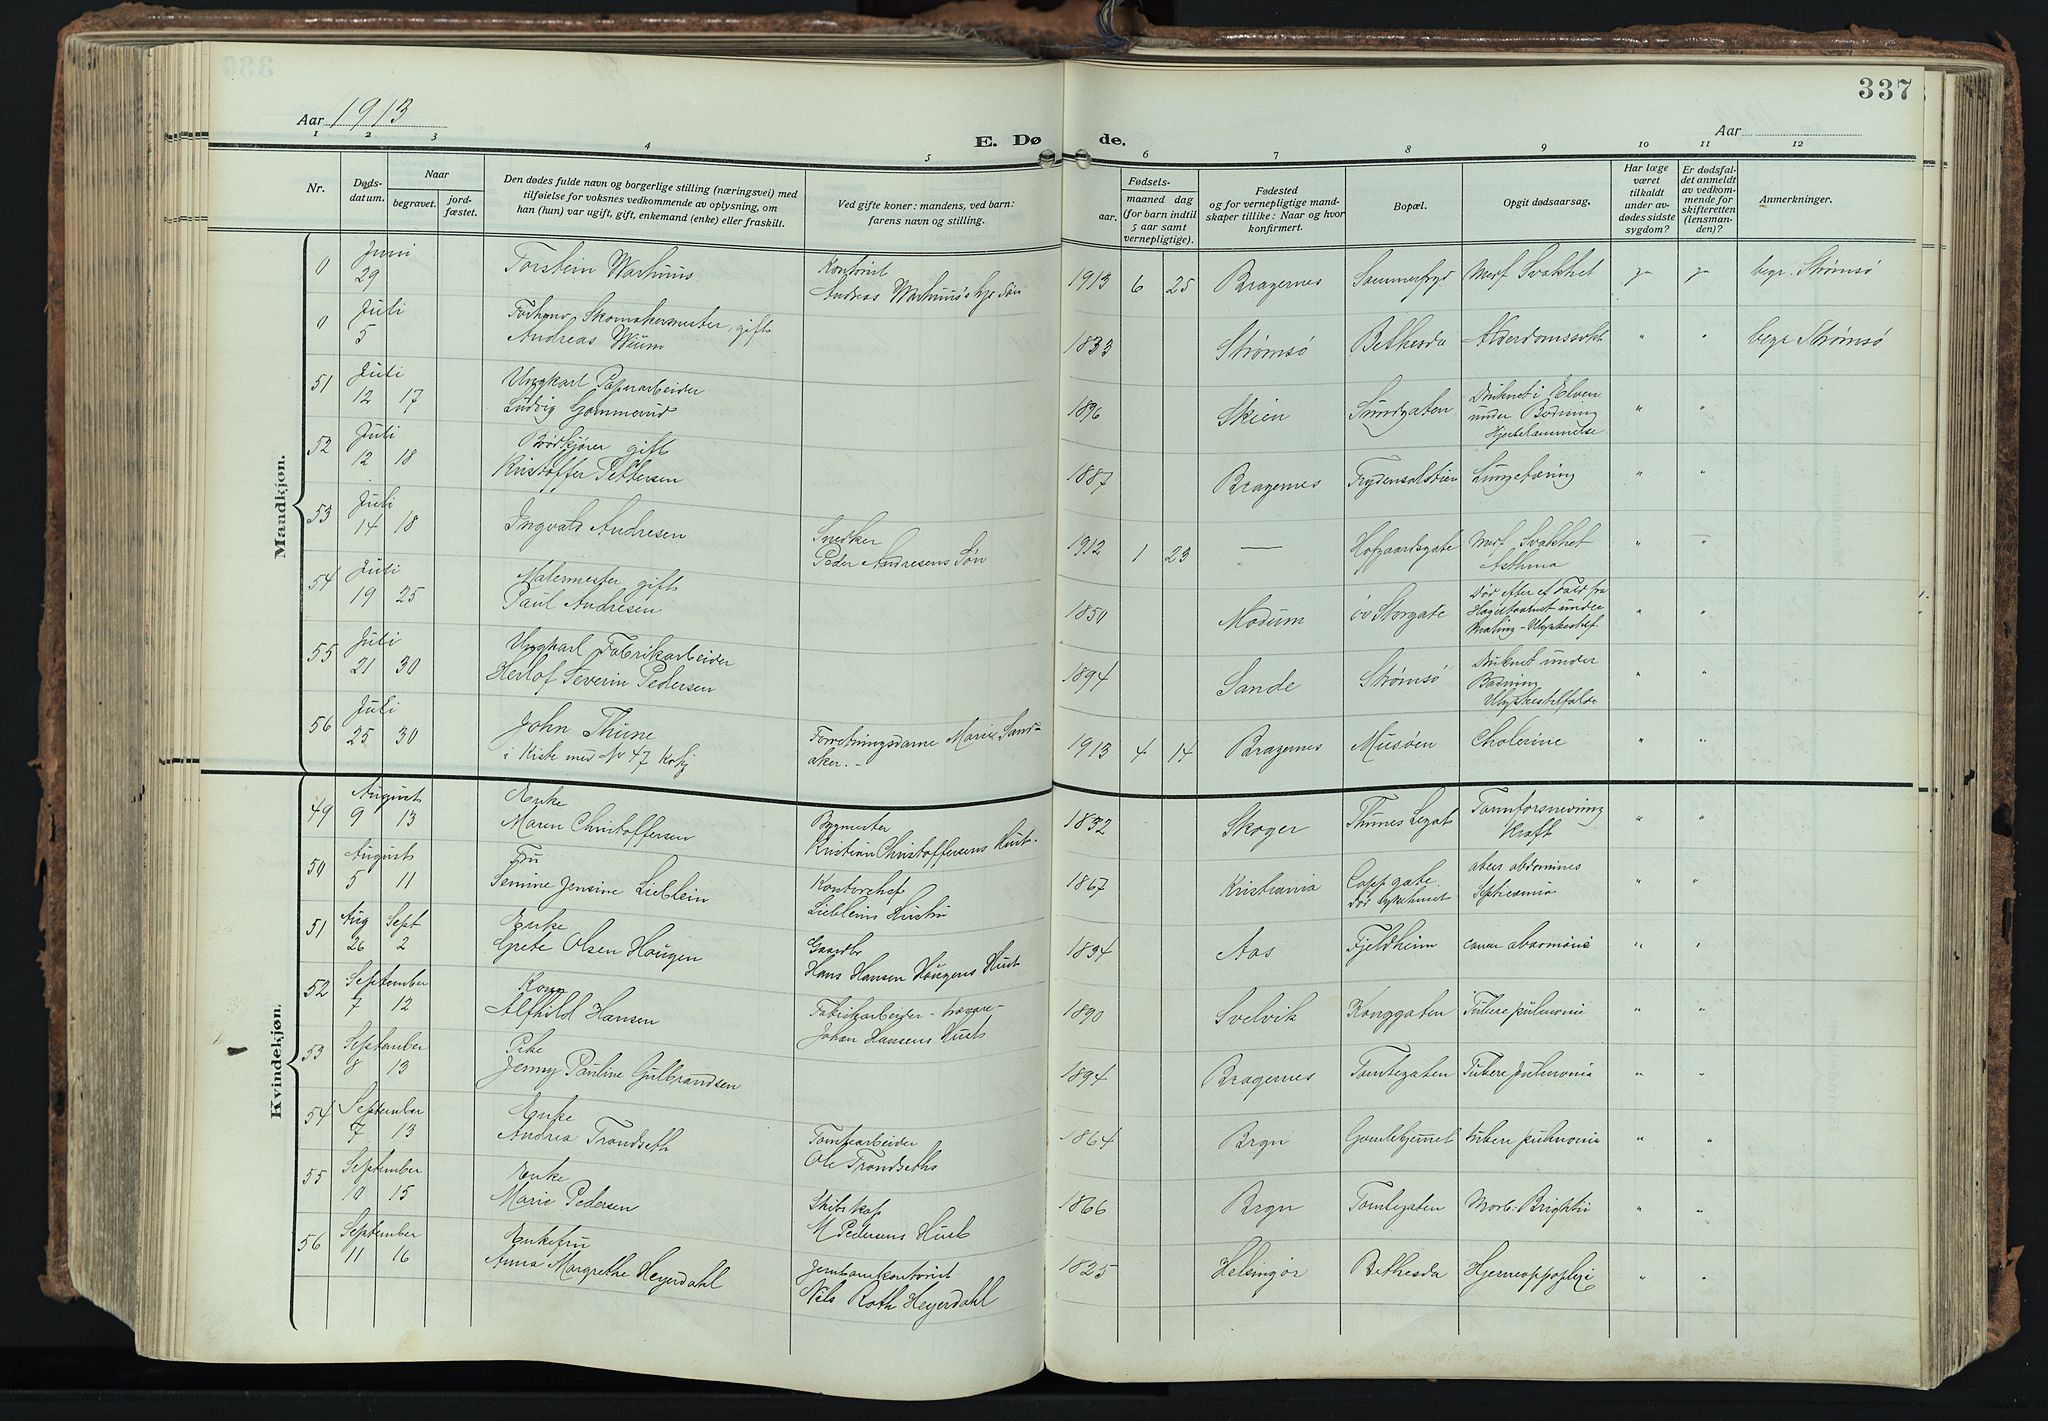 337
Aar 1913
Aar
E. Dø de.
1 2 3 4 5 6 7 8 9 10 11 12
Nr.
Døds-
datum.
Naar
begravet.
jord-
fæstet.
Den dødes fulde navn og borgerlige stilling (næringsvei) med
tilføielse for voksnes vedkommende av oplysning, om
han (hun) var ugift, gift, enkemand (enke) eller fraskilt.
Ved gifte koner: mandens, ved barn:
farens navn og stilling.
Fødsels-
aar. maaned dag
(for barn indtil
5 aar samt
vernepligtige).
Fødested
og for vernepligtige mand-
skaper tillike: Naar og hvor
konfirmert.
Bopæl.
Opgit dødsaarsag.
Har læge
været
tilkaldt
under av-
dødes sidste
sygdom?
Er dødsfal-
det anmeldt
av vedkom-
mende for
skifteretten
(lensman-
den)?
Anmerkninger.
Mandkjøn.
0 Juni 29 Torstein Warhuus Kontorist
Andreas Warhuus's Søn 1913 6 25 Bragernes Sommerfryd Medf Svakhet ja ja begr. Strømsø
0 Juli 5 Skomakermester, gift
Andreas Wium 1833 Strømsø Bethesda " " begr Strømsø
51 Juli 12 17 Ungkarl Papirarbeider
Ludvig 1896 Skien Sundgaten Druknet i Elven
under Badning
Hjertelammelse " "
52 Juli 12 18 Brødkjører gift
Kristoffer Pettersen 1887 Bragernes Lungetæring " "
53 Juli 14 18 Ingvald Andresen Snedker
Peder Andresens Søn 1912 1 23 — Hofgaardsgate Medf Svakhet
Asthma " "
54 Juli 19 25 Malermester gift
Paul Andresen 1850 Modum öv Storgate Død efter et Fald fra
under
Maling - Ulykkestilf. " "
55 Juli 21 30 Ungkarl Fabrikarbeider
Herlof Severin Pedersen 1894 Sande Strømsø Druknet under
Badning
Ulykkestilfælde " "
56 Juli 25 30 John Thune
i Kiste med No 47 Forretningsdame Marie Sand-
aker. – 1913 4 14 Bragernes Musøen Cholerine " "
Kvindekjøn.
49 August 9 13 Enke
Maren Christoffersen Bygmester
Kristian Christoffersens Hust. 1832 Skoger Thunes Legat Tarmforsnevring
Kraft " "
50 August 5 11 Fru
Semine Jensine Lieblein Kontorchef
Liebleins Hustru 1867 Kristiania Cappgate.
død Sykehuset abdominis
Septicæmia " "
51 Aug 26 Sept 2 Enke
Grete Olsen Haugen Gaardbr
Hans Hansen Haugens Hust 1834 Aas Fjeldheim " "
52 September 7 12 Kone
Alfhild Hansen Fabrikarbeider
Johan Hansens Hust 1890 Svelvik Konggaten Tuberc pulmonis " "
53 September 8 13 Pike
Jenny Pauline Gulbrandsen 1894 Bragernes Tomtegaten Tuberc pulmonis " "
54 September 7 13 Enke
Andrea Trondseth Tomtearbeider
Ole Trondseths 1864 Brgn Gamlehjemmet tuberc pulmonis " "
55 September 10 15 Enke
Marie Pedersen Skibskap
M Pedersens Hust 1866 Brgn Tomtegaten Morb. Brightii " "
56 September 11 16 Enkefru
Anna Margrethe Heyerdahl Jernbanekontorist
Nils Roth Heyerdahl 1825 Helsingør Bethesda Hjerneappoplexi " "